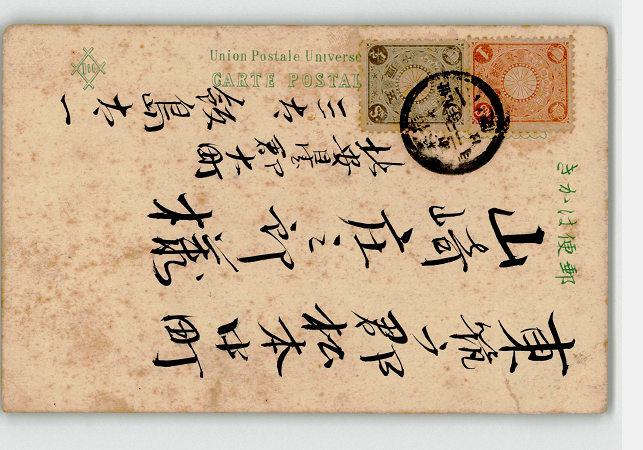 Union Postale Universe
CARTE POSTAL
郵便はかき
東筑广郡松本中町
山崎庄三郎様
北安曇郡大町
三六 飯島六一